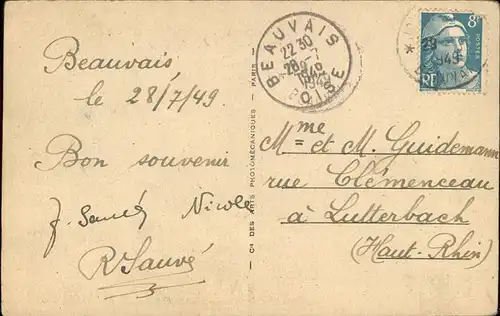 Beauvais
le 28/7/49
Bon souvenir
Nicole
R Sauvé
Cie DES ARTS PHOTOMÉCANIQUES - PARIS
BEAUVAIS
22 30
28 -7
1949
OISE
8F
POSTES
RF
1949
Mme et M. Guidemann
rue Clémenceau
à Lutterbach
(Haut-Rhin)